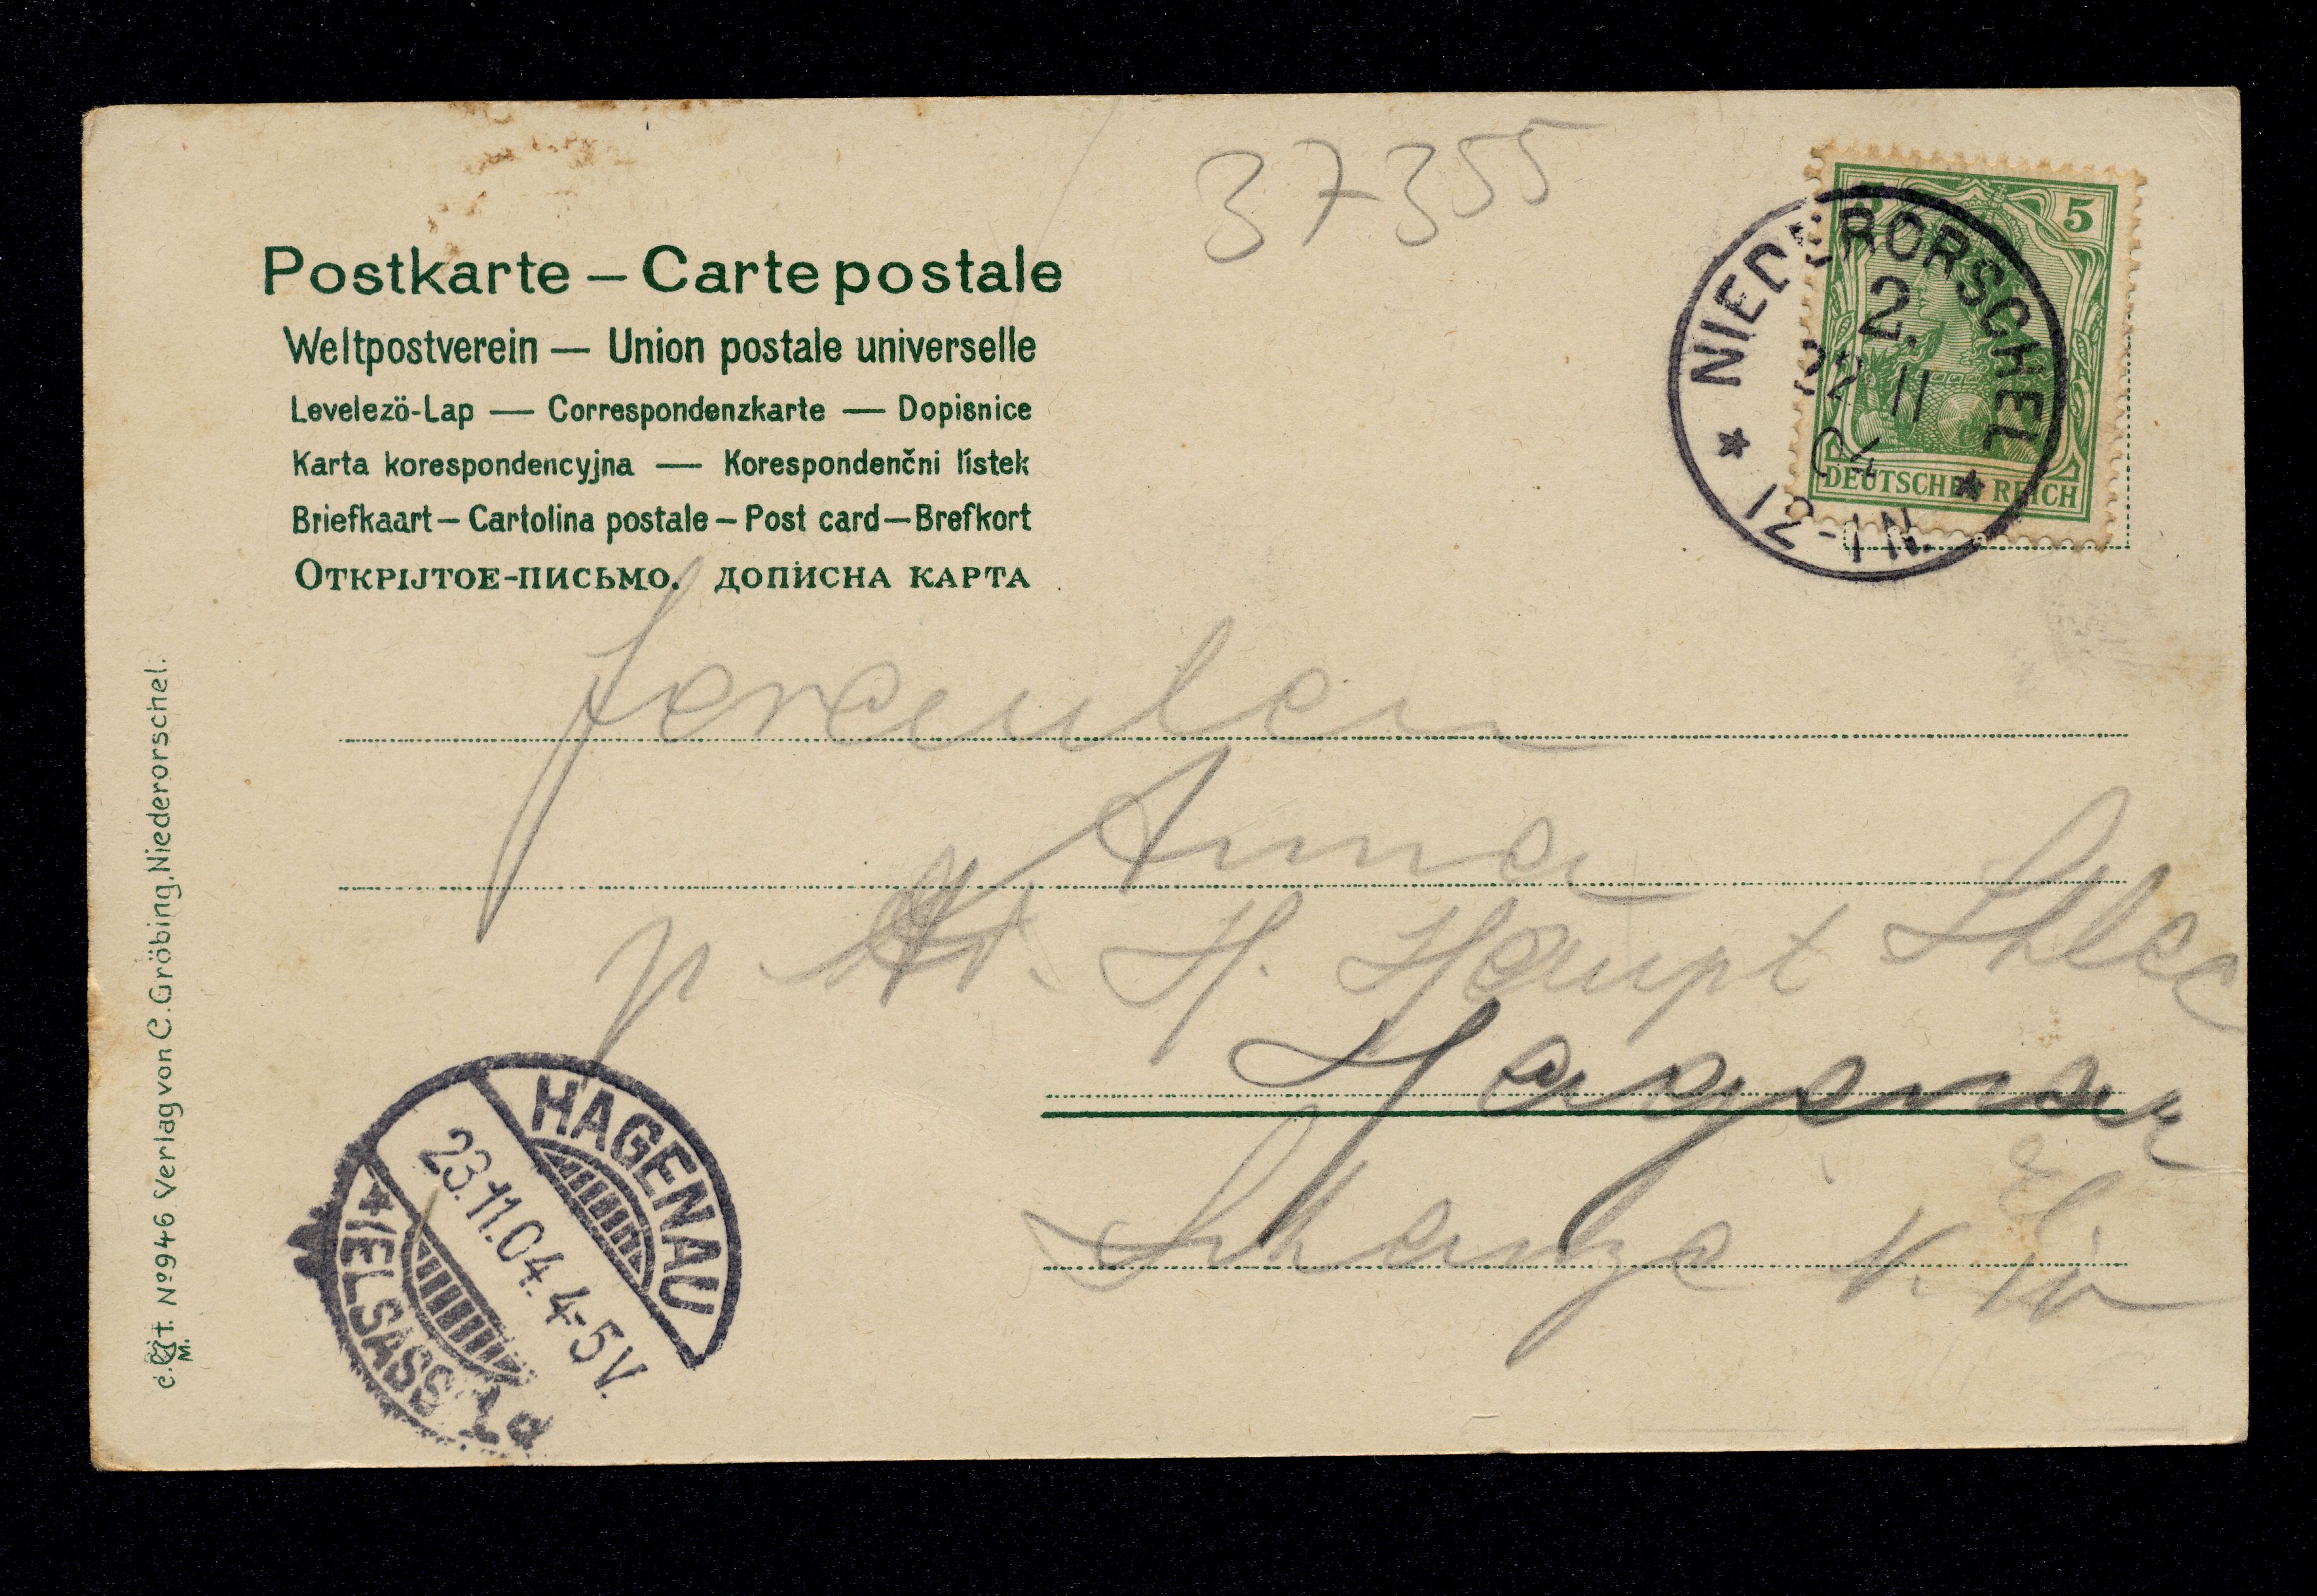 37355
Postkarte – Carte postale
Weltpostverein — Union postale universelle
Levelezö-Lap — Correspondenzkarte — Dopisnice
Karta korespondencyjna — Korespondenčni lístek
Briefkaart – Cartolina postale – Post card – Brefkort
ОТКРIJТОЕ-ПИСЬМО. ДОПИСНА КАРТА
5 5
DEUTSCHES REICH
NIEDERORSCHEL
2.
22 11
04
12-1N.
Anna
p H. Haupt
Hagenau
Els.
HAGENAU
23.11.04. 4-5V.
* (ELSASS) 1 d
№946 Verlag von C. Gröbing, Niederorschel.
M.